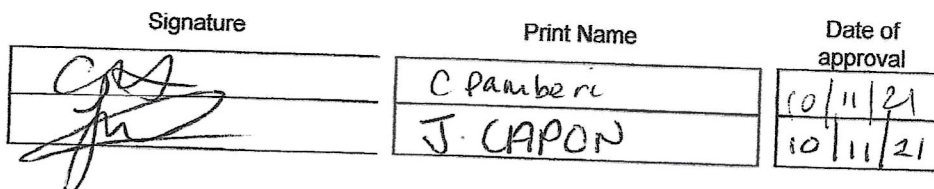 Signature Print Name Date of
approval
C Pamberi 10/11/21
J. CAPON 10/11/21